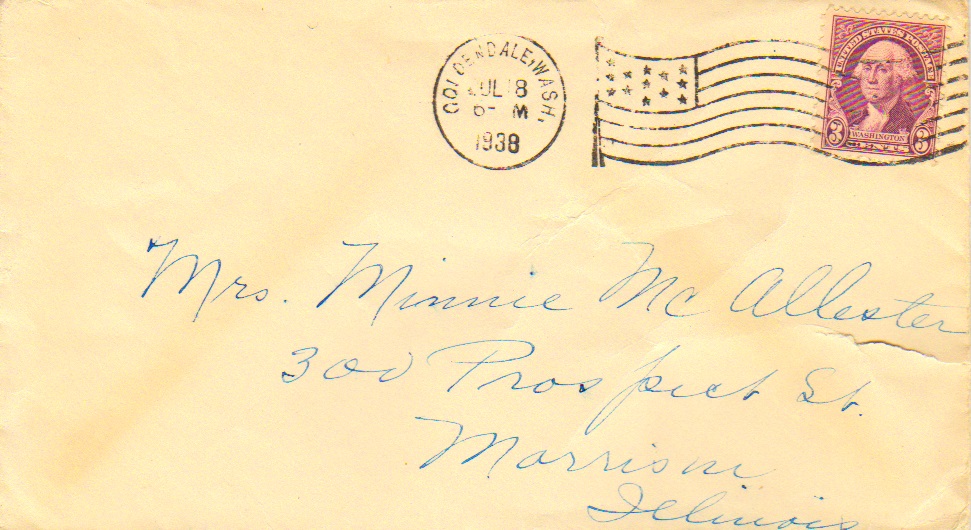 GOLDENDALE, WASH.
JUL 18
6- M
1938
UNITED STATES POSTAGE
3 WASHINGTON 3
CENTS
Mrs. Minnie McAllester
300 Prospect St.
Morrison
Illinois